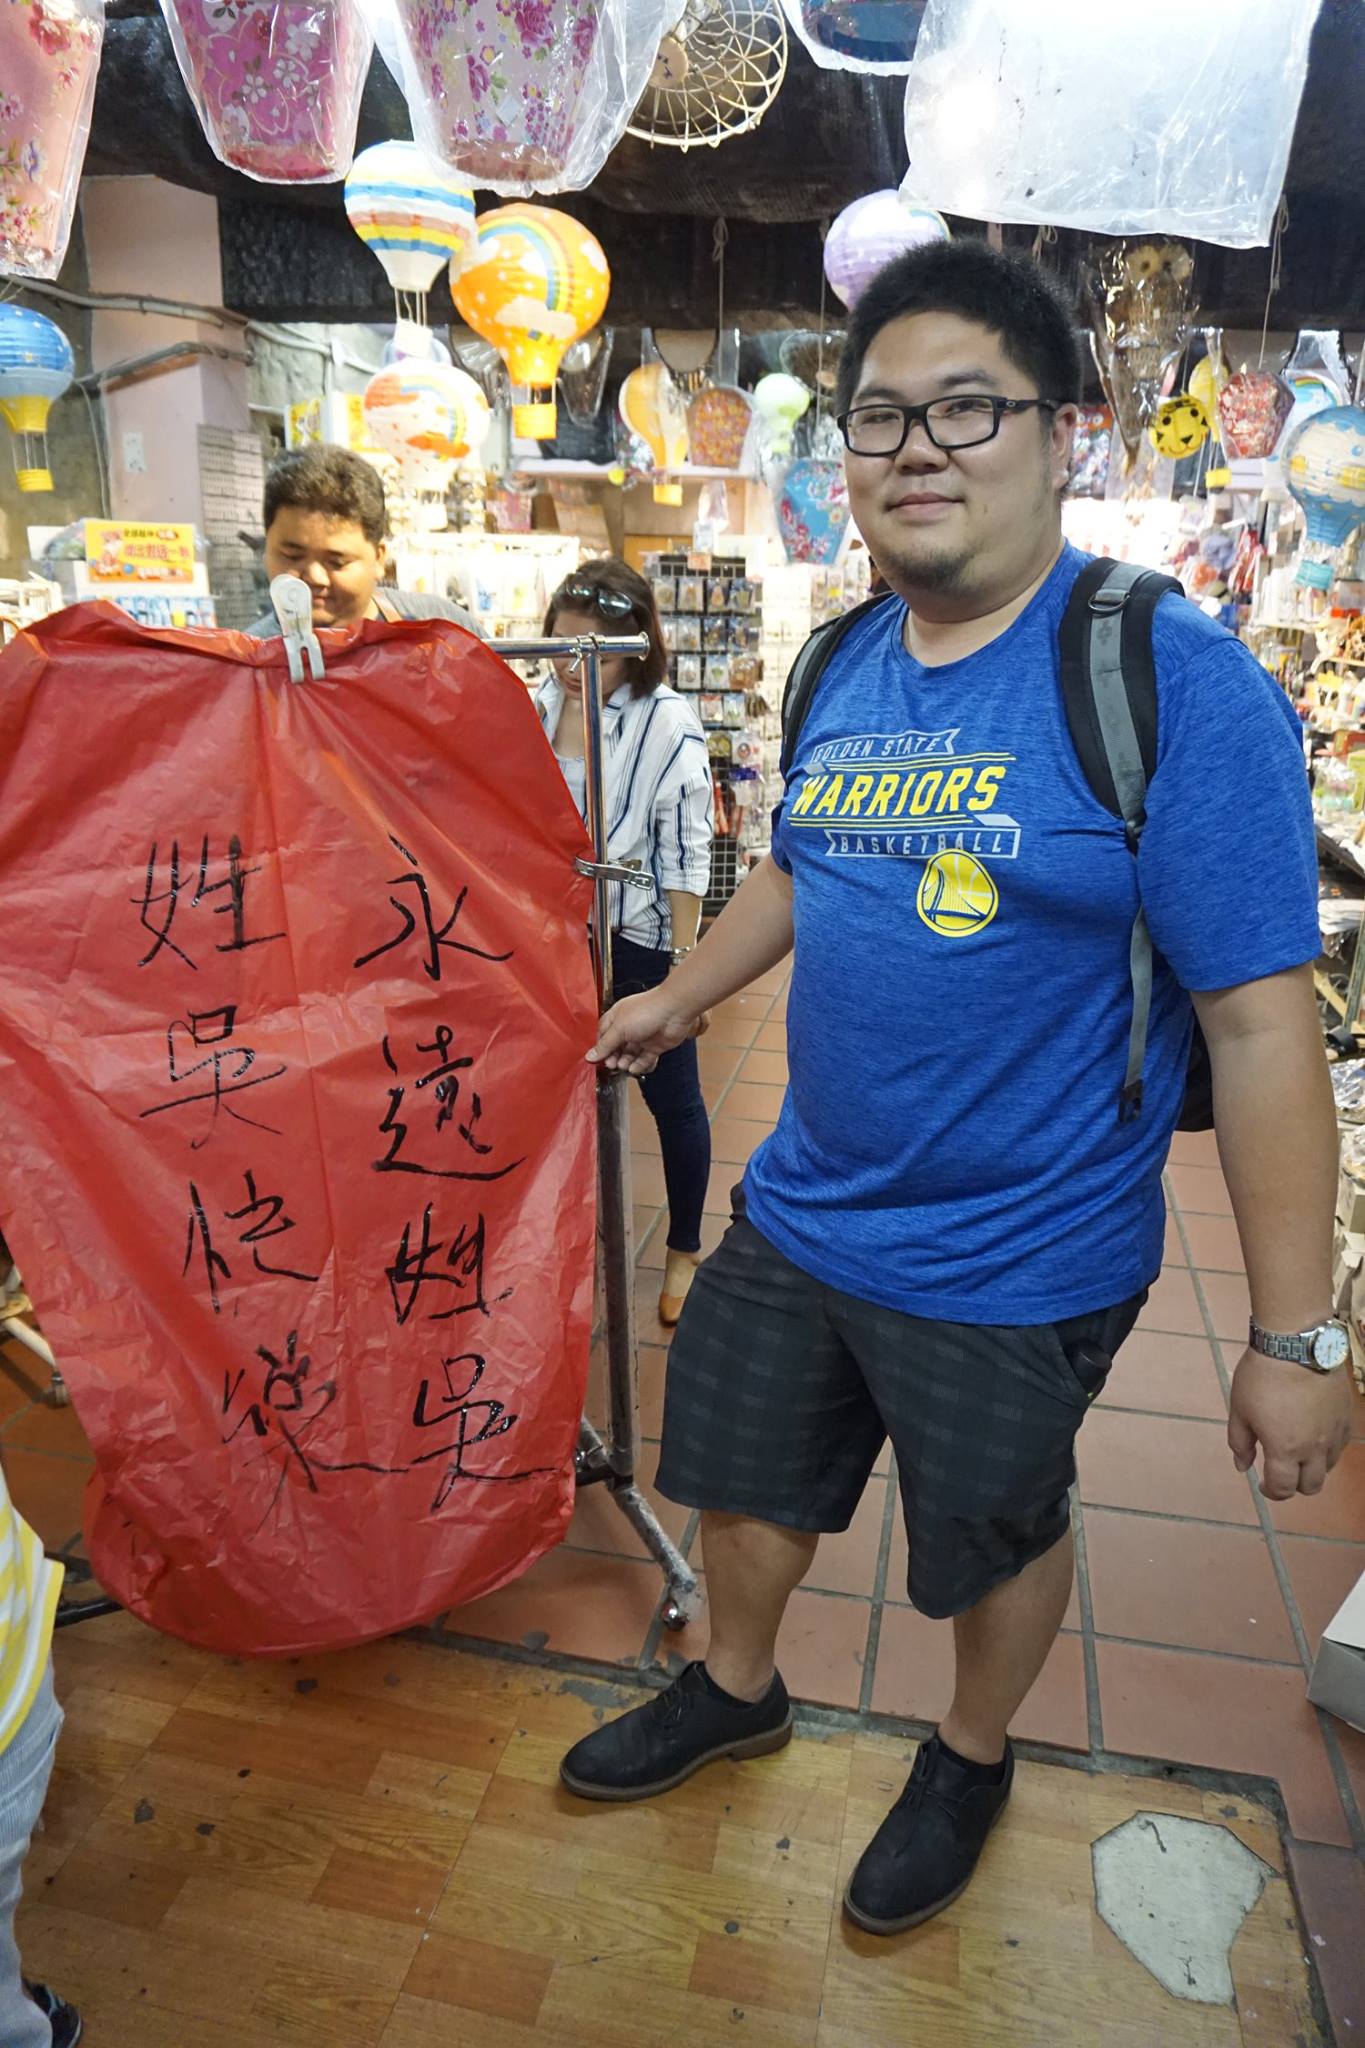 永遠姓吳
姓吳快樂
GOLDEN STATE
WARRIORS
BASKETBALL